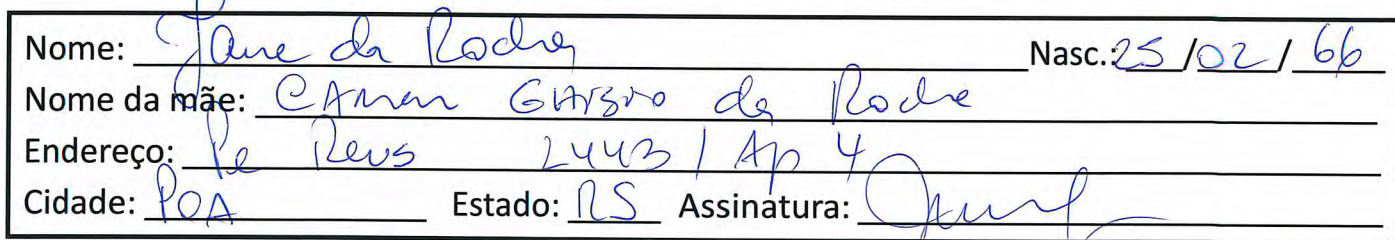 Nome: Jane da Rocha Nasc.: 25 / 02 / 66
Nome da mãe: da Rocha
Endereço: Pe Reus 2443 / Ap 4
Cidade: POA Estado: RS Assinatura: